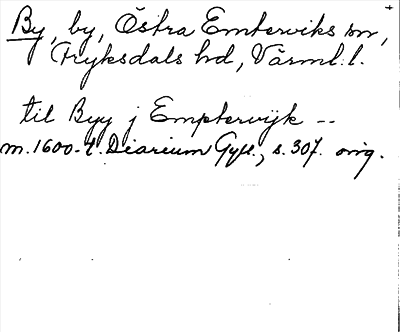 By, by, Östra Emterviks sn,
Fryksdals hd, Värml. l.
til Byy j Empterwijk --
m. 1600-t. Diarium Gyll., s. 307. orig.